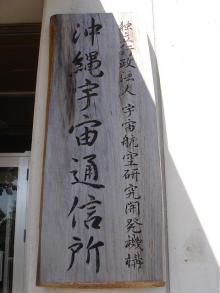 独立行政法人 宇宙航空研究開発機構
沖縄宇宙通信所